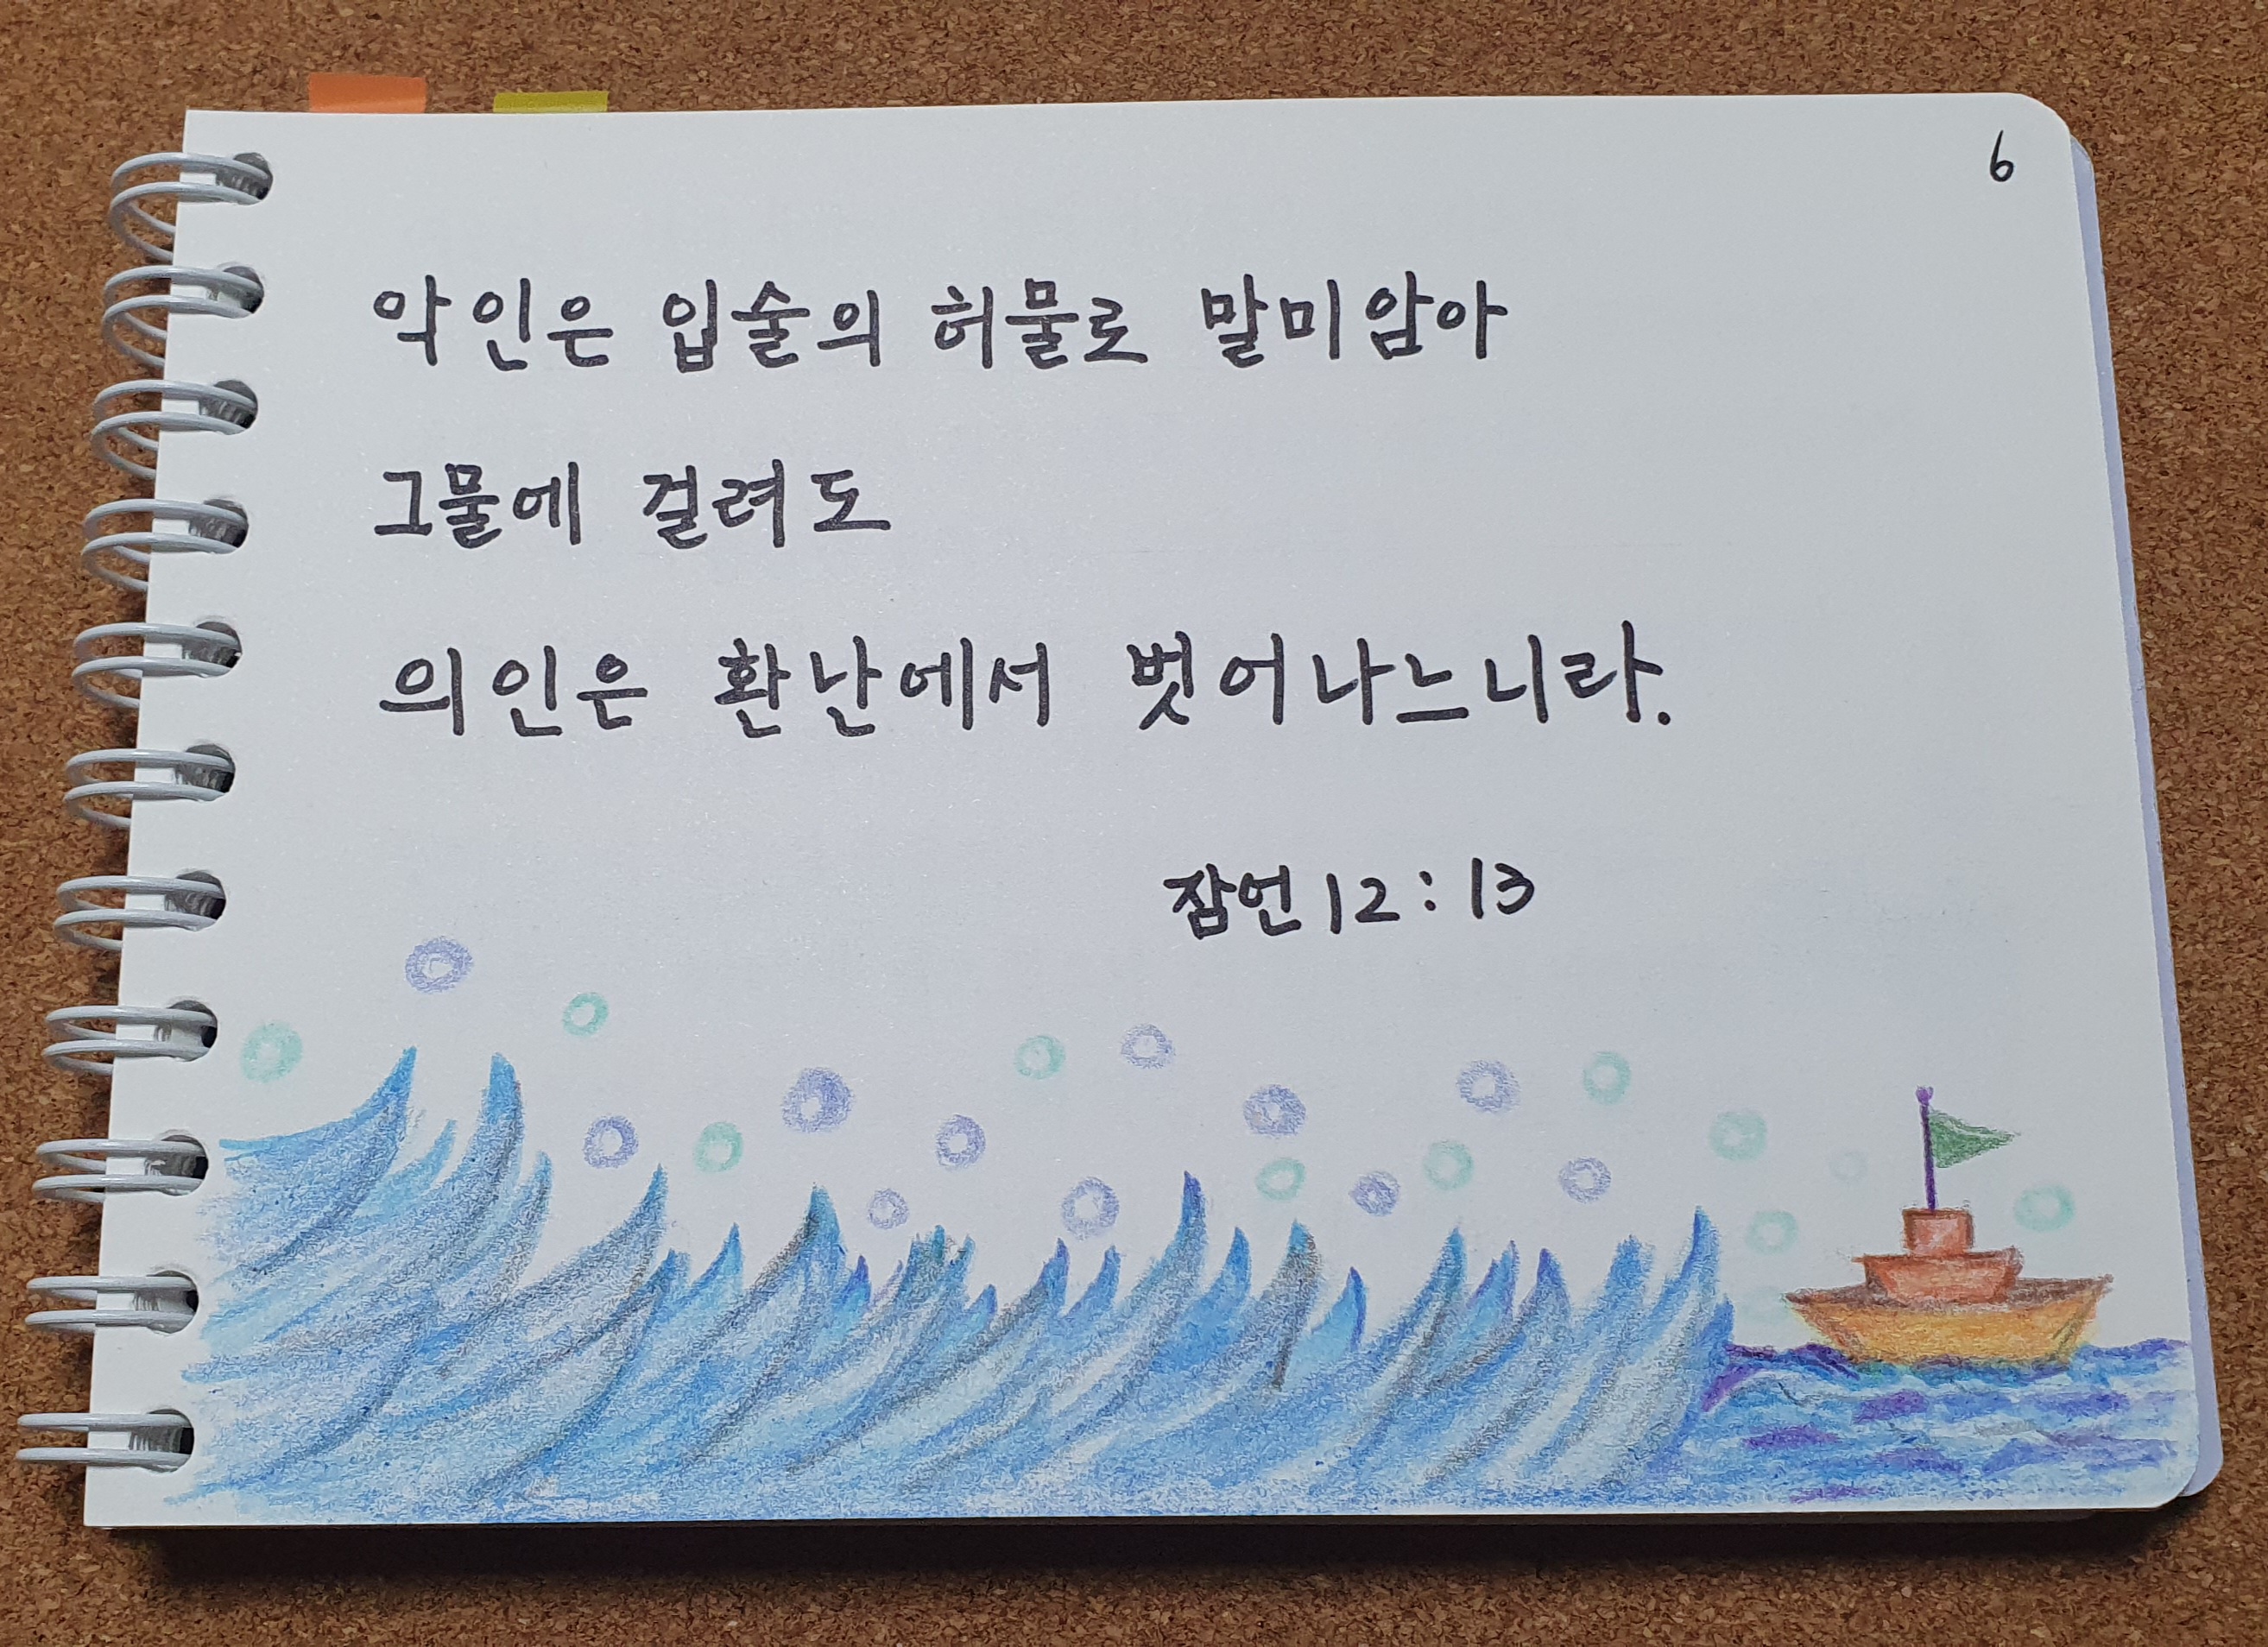 6
악인은 입술의 허물로 말미암아
그물에 걸려도
의인은 환난에서 벗어나느니라.
잠언 12:13